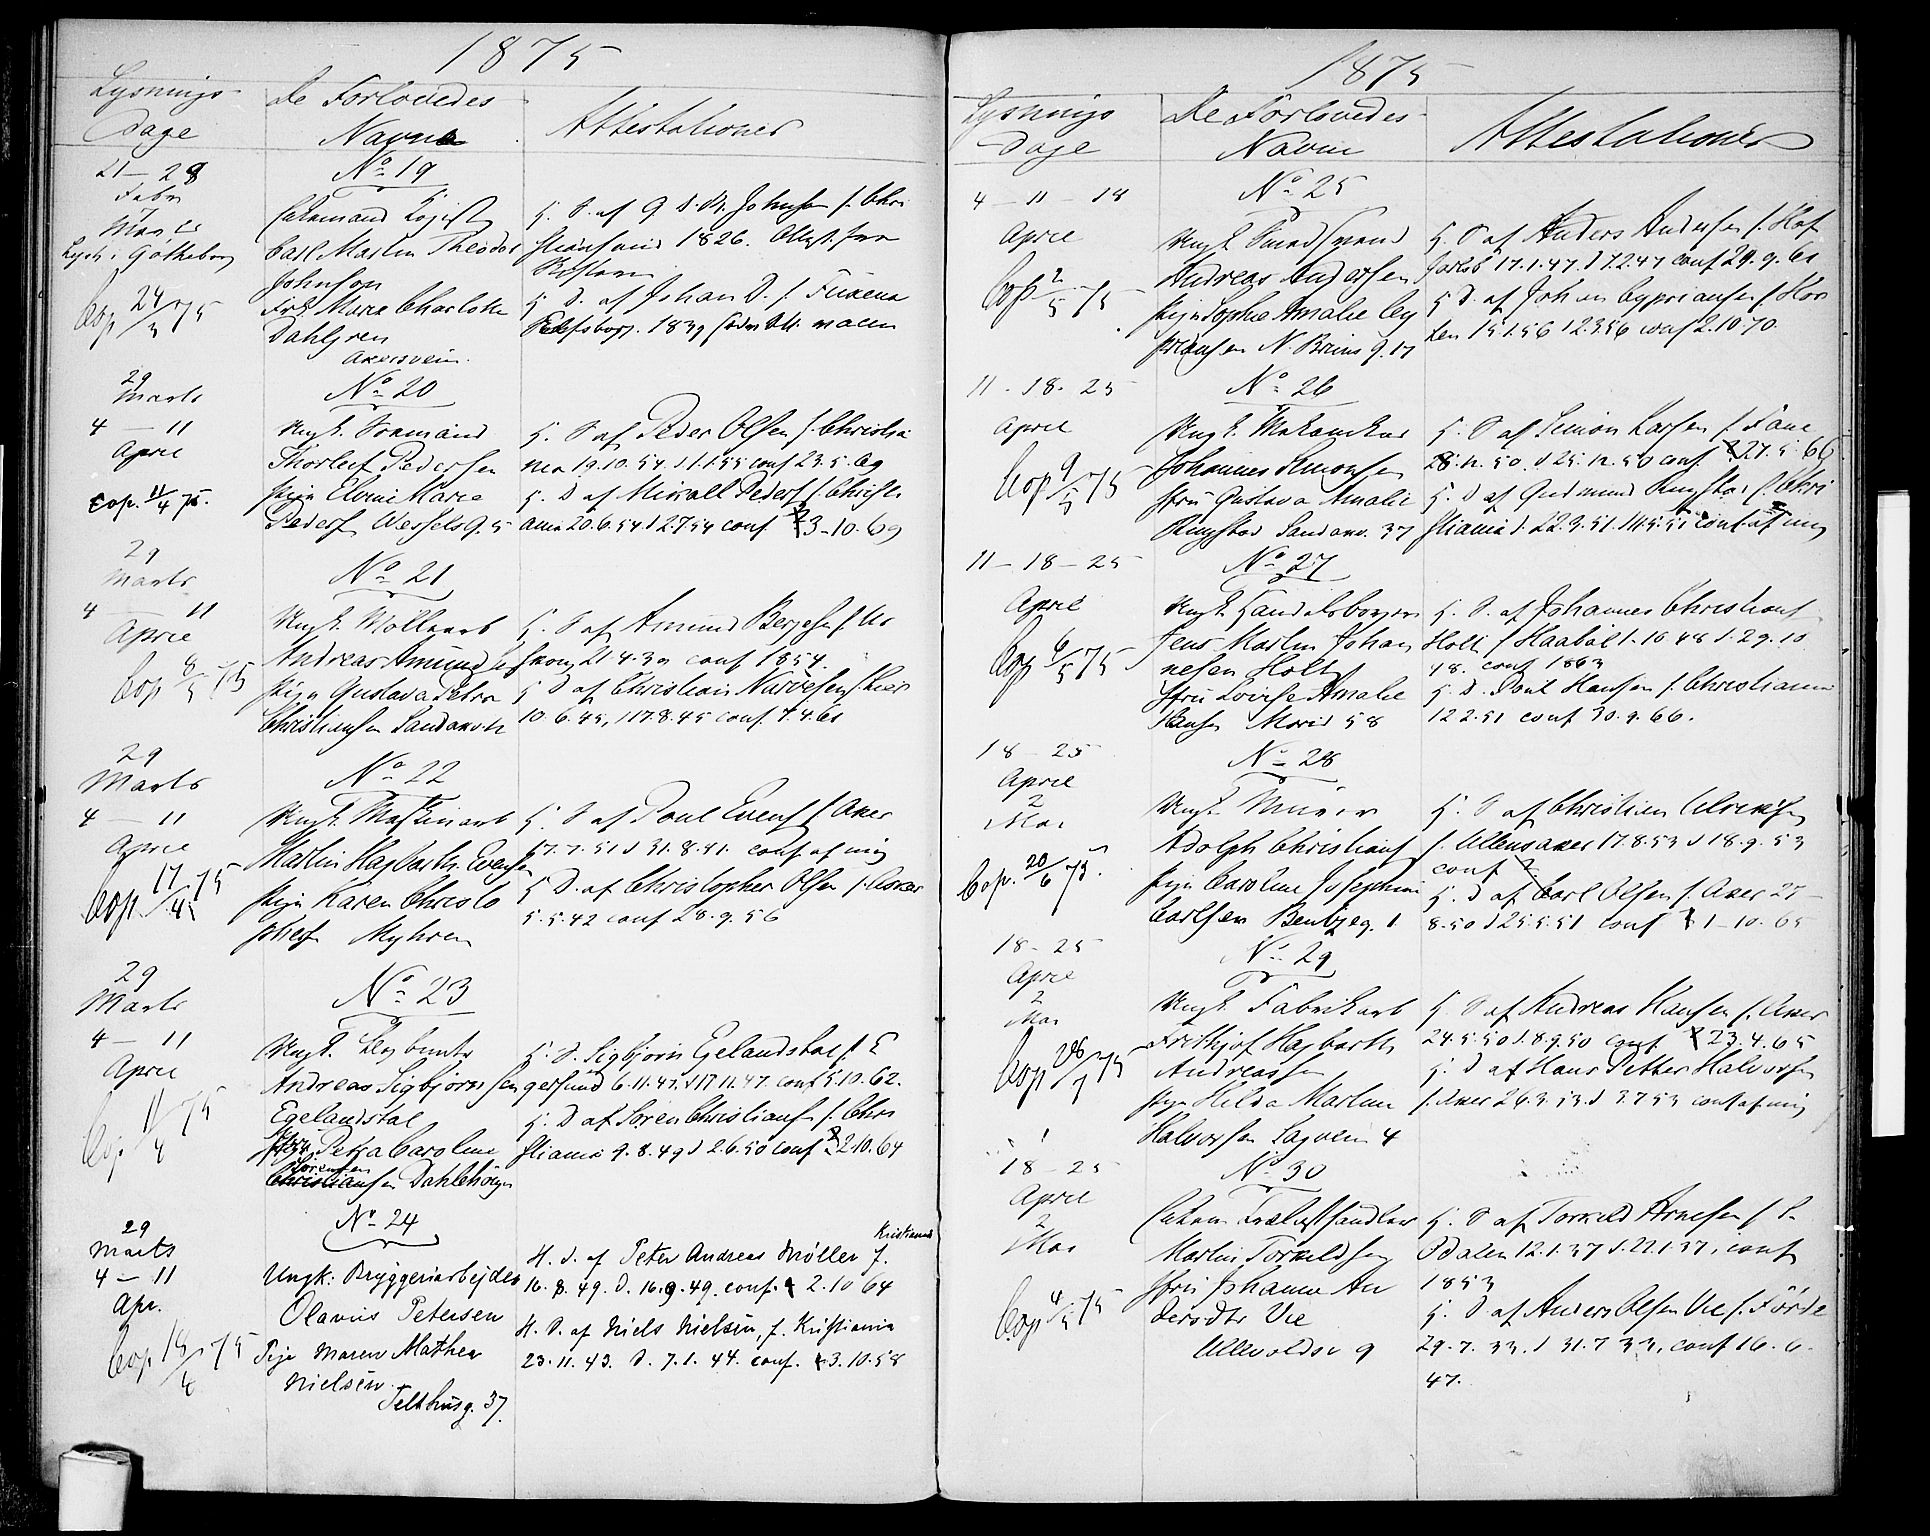 1875
Lysnings
Dage
De Forlovedes
Navne
Attestationer
21 - 28
Febr
Marts
Lyst i Gøtheborg
Cop 24/3 75
No 19
Carl Martin Theodor
Johnson
Frk Maria Charlotte
Dahlgren
Akersvein.
S. af
Johnsen f. Chri
1826. Attest. fra
D. af Johan D. f.
1839
29
Marts
4 - 11
April
Cop. 11/4 75.
No 20
Ungk.
Thorleif Pedersen
Pige Marie
Pedersen Wessels g. 5
H. S af Peder Olsen f. Christia
nia 19.10.54. d 1.1.55 conf 23.5.69
H. D af Pedersf f. Christi
ania 20.6.54 d 2.7.54 conf 3-10.69
29
Marts
4 - 11
April
Cop 8/5 75
No 21
Ungk. Møllearb
Andreas Amundsen
Pige Gustava Petra
Christiansen
H. S af Amund f.
21.4.39 conf 1854.
H D af Christian
10.6.45, d 17.8.45 conf 7.4.61
29
Marts
4 - 11
April
Cop. 17/4 75
No 22
Ungk. Maskinarb
Martin Hagbarth Evensen
Pige Karen Christo
phersen Myhren
H. S af Poul Evensf f. Aker
d 31.8.51. conf af mig
H D. af Christopher Olsen f. Asker
5.5.42 conf 28.9.56
29
Marts
4 - 11
April
Cop 11/4 75
No 23
Ungk.
Andreas Sigbjørnsen
Egelandsdal
Petra Caroline
Sørensen
Christiansen
H. S. Sigbjørn Egelandsdal f. E
gersund 6.11.47. d 17.11.47. conf 5.10.62.
H. D af Søren Christiansen f. Chri
stiania 9.8.49 d 2.6.50 conf 2.10.64
29
Marts
4 - 11
Apr.
Cop 18/4 75
No 24
Ungk: Bryggeriarbejder
Olavus Petersen
Pige Maren Mathea
Nielsen.
Telthusg. 37.
Kristiania
H. S. af Peter Andreas Møller f.
16.8.49. D. 16.9.49. conf. 2.10 64
H. D. af Niels Nielsen, f. Kristiania
23.11.43. D. 7.1.44. conf. 3.10.58
1875
Lysnings
Dage
De Forlovedes
Navne
Attestationer
4 - 11 - 18
April
Cop 2/5 75
No 25
Ungk. Smedsvend
Andreas Andersen
Pige Sophie Amalie Cy
priansen N. Bruns g. 17
H. S af Anders Andersen f. Haf
17.1.47. d 7.2.47 conf 29.9.61
H D. af Johan Cypriansen f. Hor
ten 15.1.56 d 2.3.56 conf 2.10.70.
11 - 18 - 25
April
Cop 9/5 75
No 26
Ungk. Mekanikus
Johannes Simonsen
Fru Gustava Amalie
Ringstad Sandakv. 37
H. S af Simon Larsen f. Fane
28.12.50. d 25.12.50 conf 27.5.66
H. D af Gudmund Ringstad f. Chri
stiania d. 22.3.51. conf af mig
11 - 18 - 25
April
Cop 6/5 75
No 27
Ungk. Handelsborger
Jens Martin Johan
nesen Holt
Fru Lovise Amalie
Hansen 58
H. S. af Johannes Christiansf
Holt f 1.10 48 d. 29.10
48. conf 1863
H. D. Poul Hansen f. Christiania
12 2.51 conf 30.9.66.
18 - 25
April
2
Mai
Cop. 20/6 75.
No 28
Ungk. Murer
Adolph Christiansf
Pige Caroline Josephine
Carlsen 1
H. S af Christian Ulriksen
f. Ullensaker 17.8.53 d 18.9.53
conf
H. D af Carl Olsen f. Aker 27
8.50 d 25.5.51 conf 1-10.65
18 - 25
April
2
Mai
Cop 75
No 29
Ungk. Fabrikarb
Frithjof Hagbarth
Andreassen
Pige Hilda Martine
Halvorsen Sagvein 4
H. S af Andreas Hansen f. Aker
24.5.50 d. 8.9.50 conf 23.4.65
H. D af Hans Petter Halvorsen
f. Aker 26.3.53. d 3.7.53 conf af mig
18 - 25
April
2
Mai
Cop 4/5 75
No 30
Martin Torkildsen
Fru Johanne An
dersdtr Vie
Ullevoldsv 9
H. S af Torkild Arnesen f S.
Odalen 12.1.37 d. 22.1.37, conf
1853
H. D af Anders Olsen Vie f. Førde
29.7.33. d 31.7 33, conf 16.6.
47.